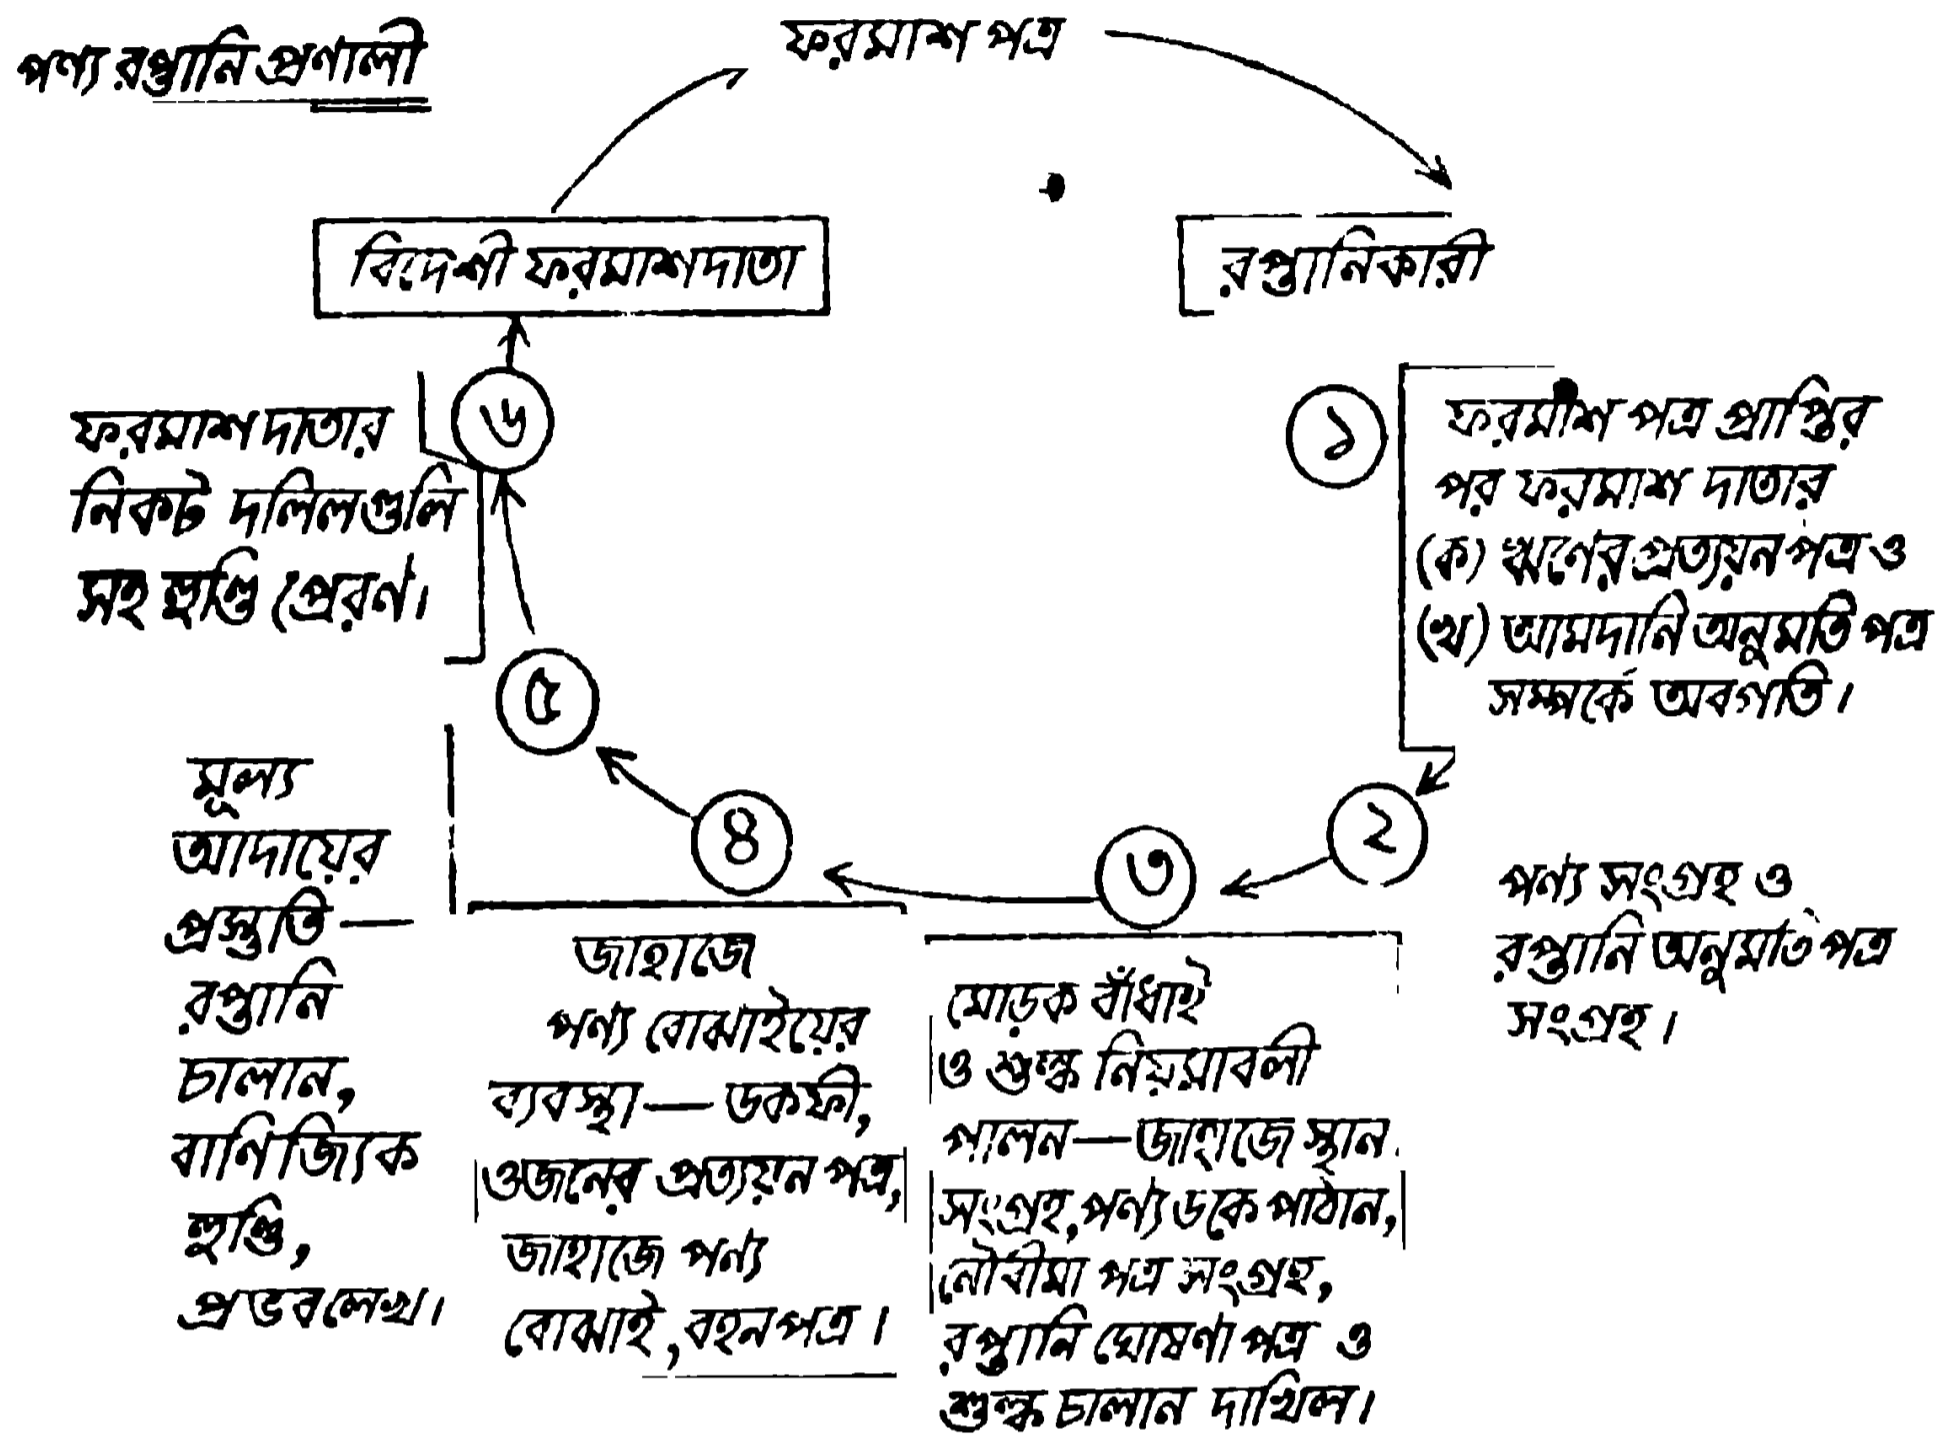 পণ্য রপ্তানি প্রণালী
ফরমাশ পত্র
বিদেশী ফরমাশদাতা
রপ্তানিকারী
১
ফরমাশ পত্র প্রাপ্তির
পর ফরমাশ দাতার
(ক) ঋণের প্রত্যয়ন পত্র ও
(খ) আমদানি অনুমতি পত্র
সম্পর্কে অবগতি।
২
পণ্য সংগ্রহ ও
রপ্তানি অনুমতি পত্র
সংগ্রহ।
৩
মোড়ক বাঁধাই
ও শুল্ক নিয়মাবলী
পালন — জাহাজে স্থান
সংগ্রহ, পণ্য ডকে পাঠান,
নৌবীমা পত্র সংগ্রহ,
রপ্তানি ঘোষণা পত্র ও
শুল্ক চালান দাখিল।
৪
জাহাজে
পণ্য বোঝাইয়ের
ব্যবস্থা — ডকফী,
ওজনের প্রত্যয়ন পত্র,
জাহাজে পণ্য
বোঝাই, বহনপত্র।
৫
মূল্য
আদায়ের
প্রস্তুতি —
রপ্তানি
চালান,
বাণিজ্যিক
হুণ্ডি,
প্রভবলেখ।
৬
ফরমাশ দাতার
নিকট দলিলগুলি
সহ হুণ্ডি প্রেরণ।